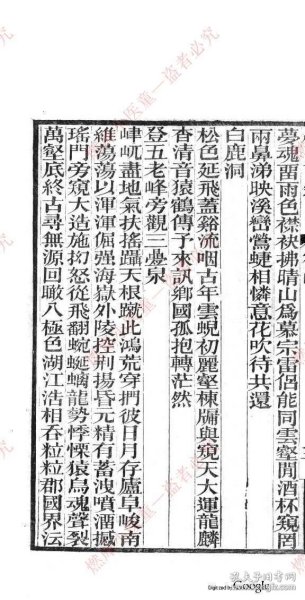 夢魂畱雨色襟袂拂晴山爲幕宗雷侶能同雲壑閒酒杯窺罔
兩鼻涕映溪巒鶯蜨相憐意花吹待共還
白鹿洞
松色延飛蓋谿流咽古年雲蜺初麗壑棟牖與窺天大運龍麟
杳清音猿鶴傳予來訊鄉國孤抱轉茫然
登五老峰旁觀三疊泉
峍屼盡地氣扶搖躡天根蹴此鴻荒穿捫彼日月存廬阜峻南
維蕩蕩以渾渾倔强海嶽外陵控荆揚昬元精有蓄洩噴湎撼
瑤門旁窺大造施扨怒從飛翻蜿蜒螭龍勢悸慄猿鳥魂聲裂
萬壑底終古尋無源回瞰八極色湖江浩相吞粒粒郡國界沄
Digitized by Google